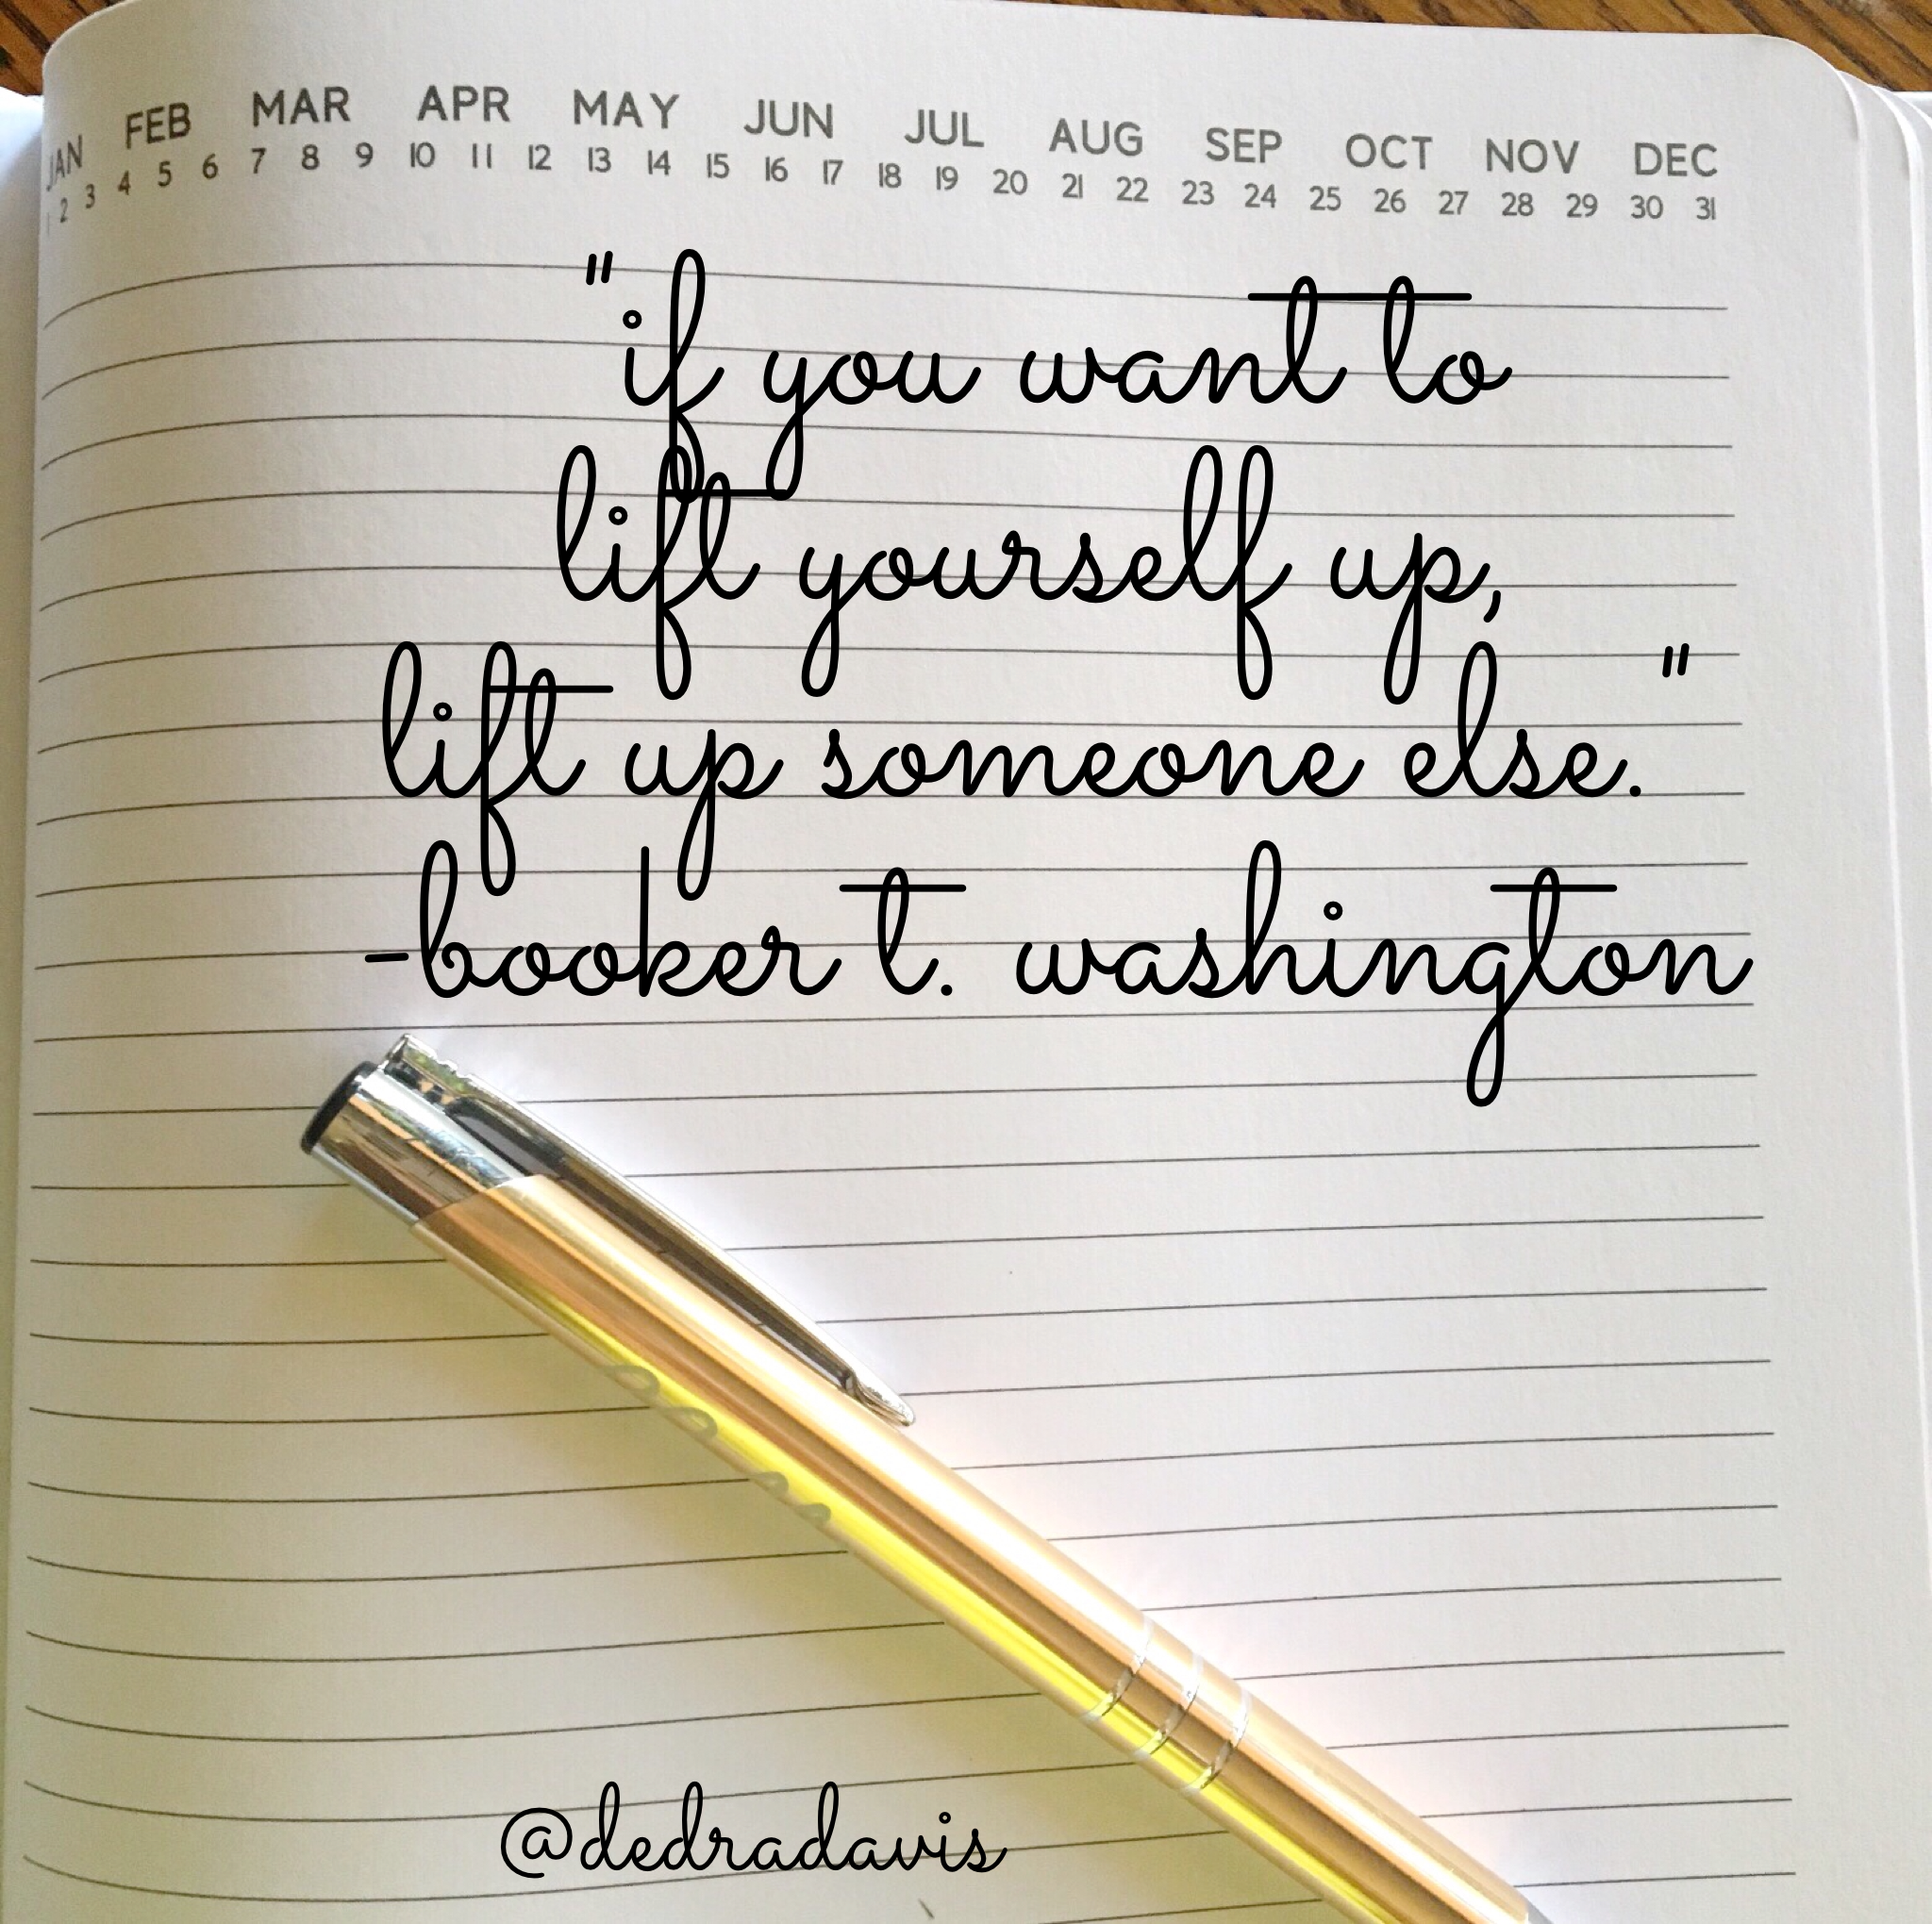 JAN FEB MAR APR MAY JUN JUL AUG SEP OCT NOV DEC
1 2 3 4 5 6 7 8 9 10 11 12 13 14 15 16 17 18 19 20 21 22 23 24 25 26 27 28 29 30 31
"if you want to
lift yourself up,
lift up someone else."
-booker t. washington
@dedradavis